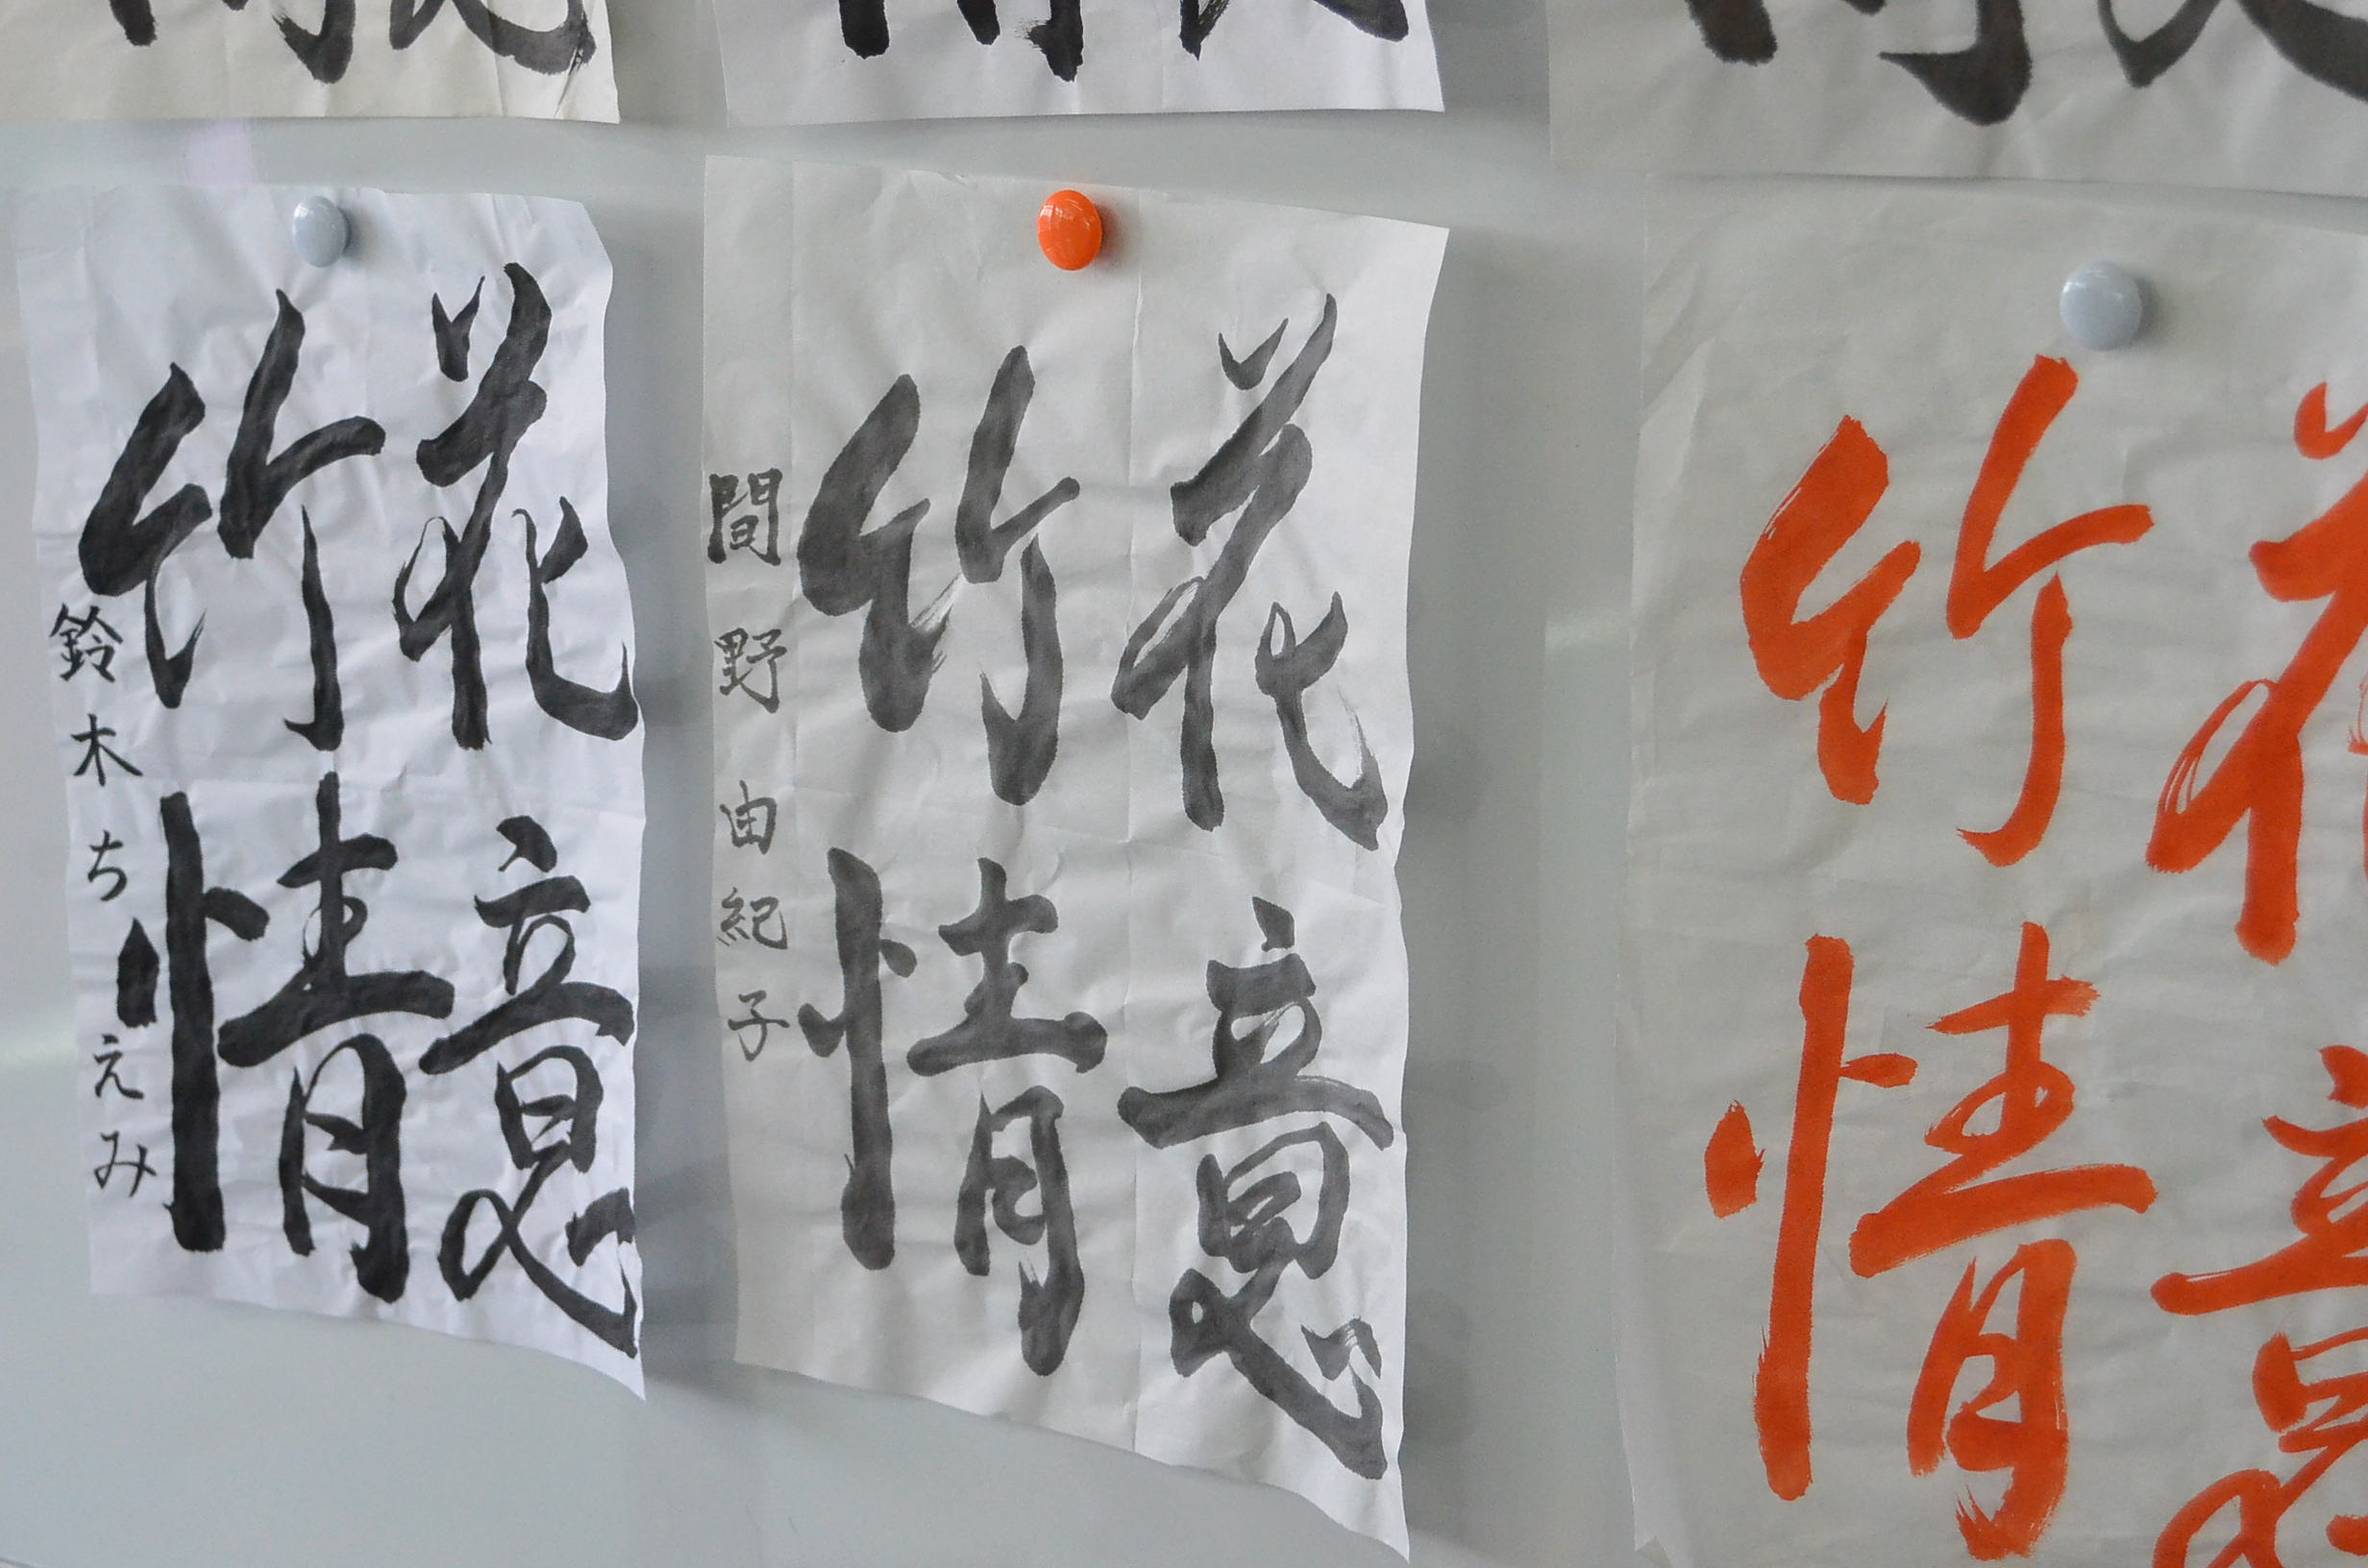 花意
竹情
鈴木ちえみ
花意
竹情
間野由紀子
花意
竹情